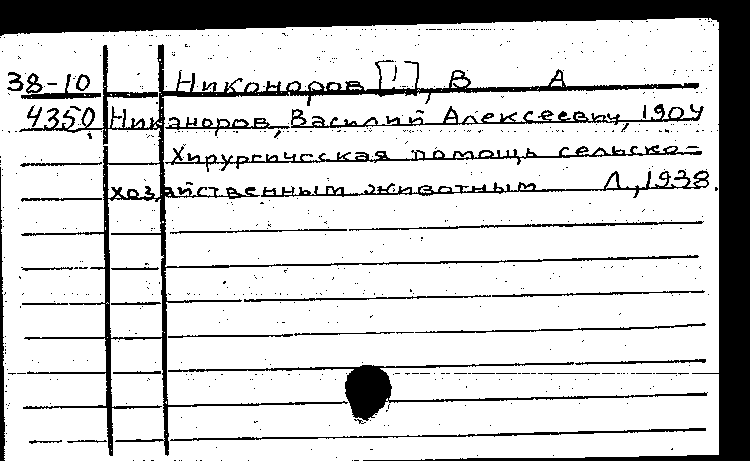 38-10 Никоноров [!], В А
4350 Никаноров, Василий Алексеевич, 1904
Хирургическая помощь сельско=
хозяйственным животным Л., 1938.